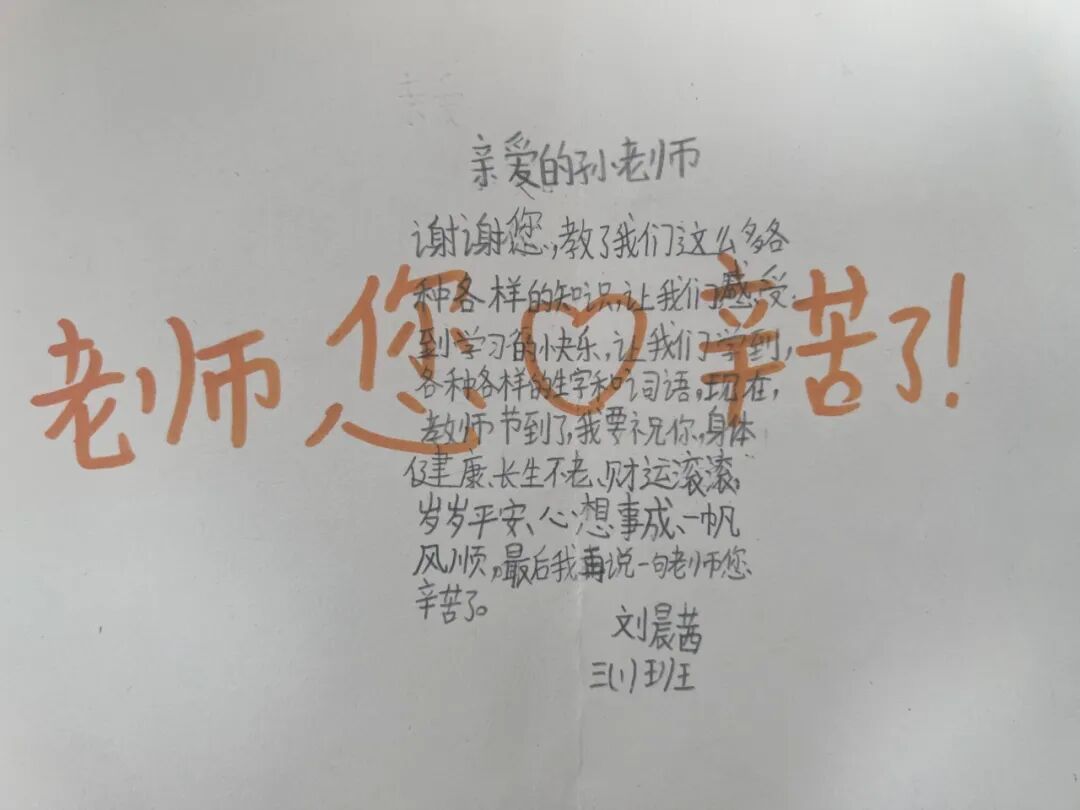 亲爱的孙老师
谢谢您,教了我们这么多各
种各样的知识,让我们感受
到学习的快乐,让我们学到,
各种各样的生字和词语。现在,
教师节到了,我要祝你,身体
健康、长生不老、财运滚滚,
岁岁平安、心想事成、一帆
风顺,最后我再说一句老师您
辛苦了。
刘晨茜
三(1)班
老师您辛苦了!